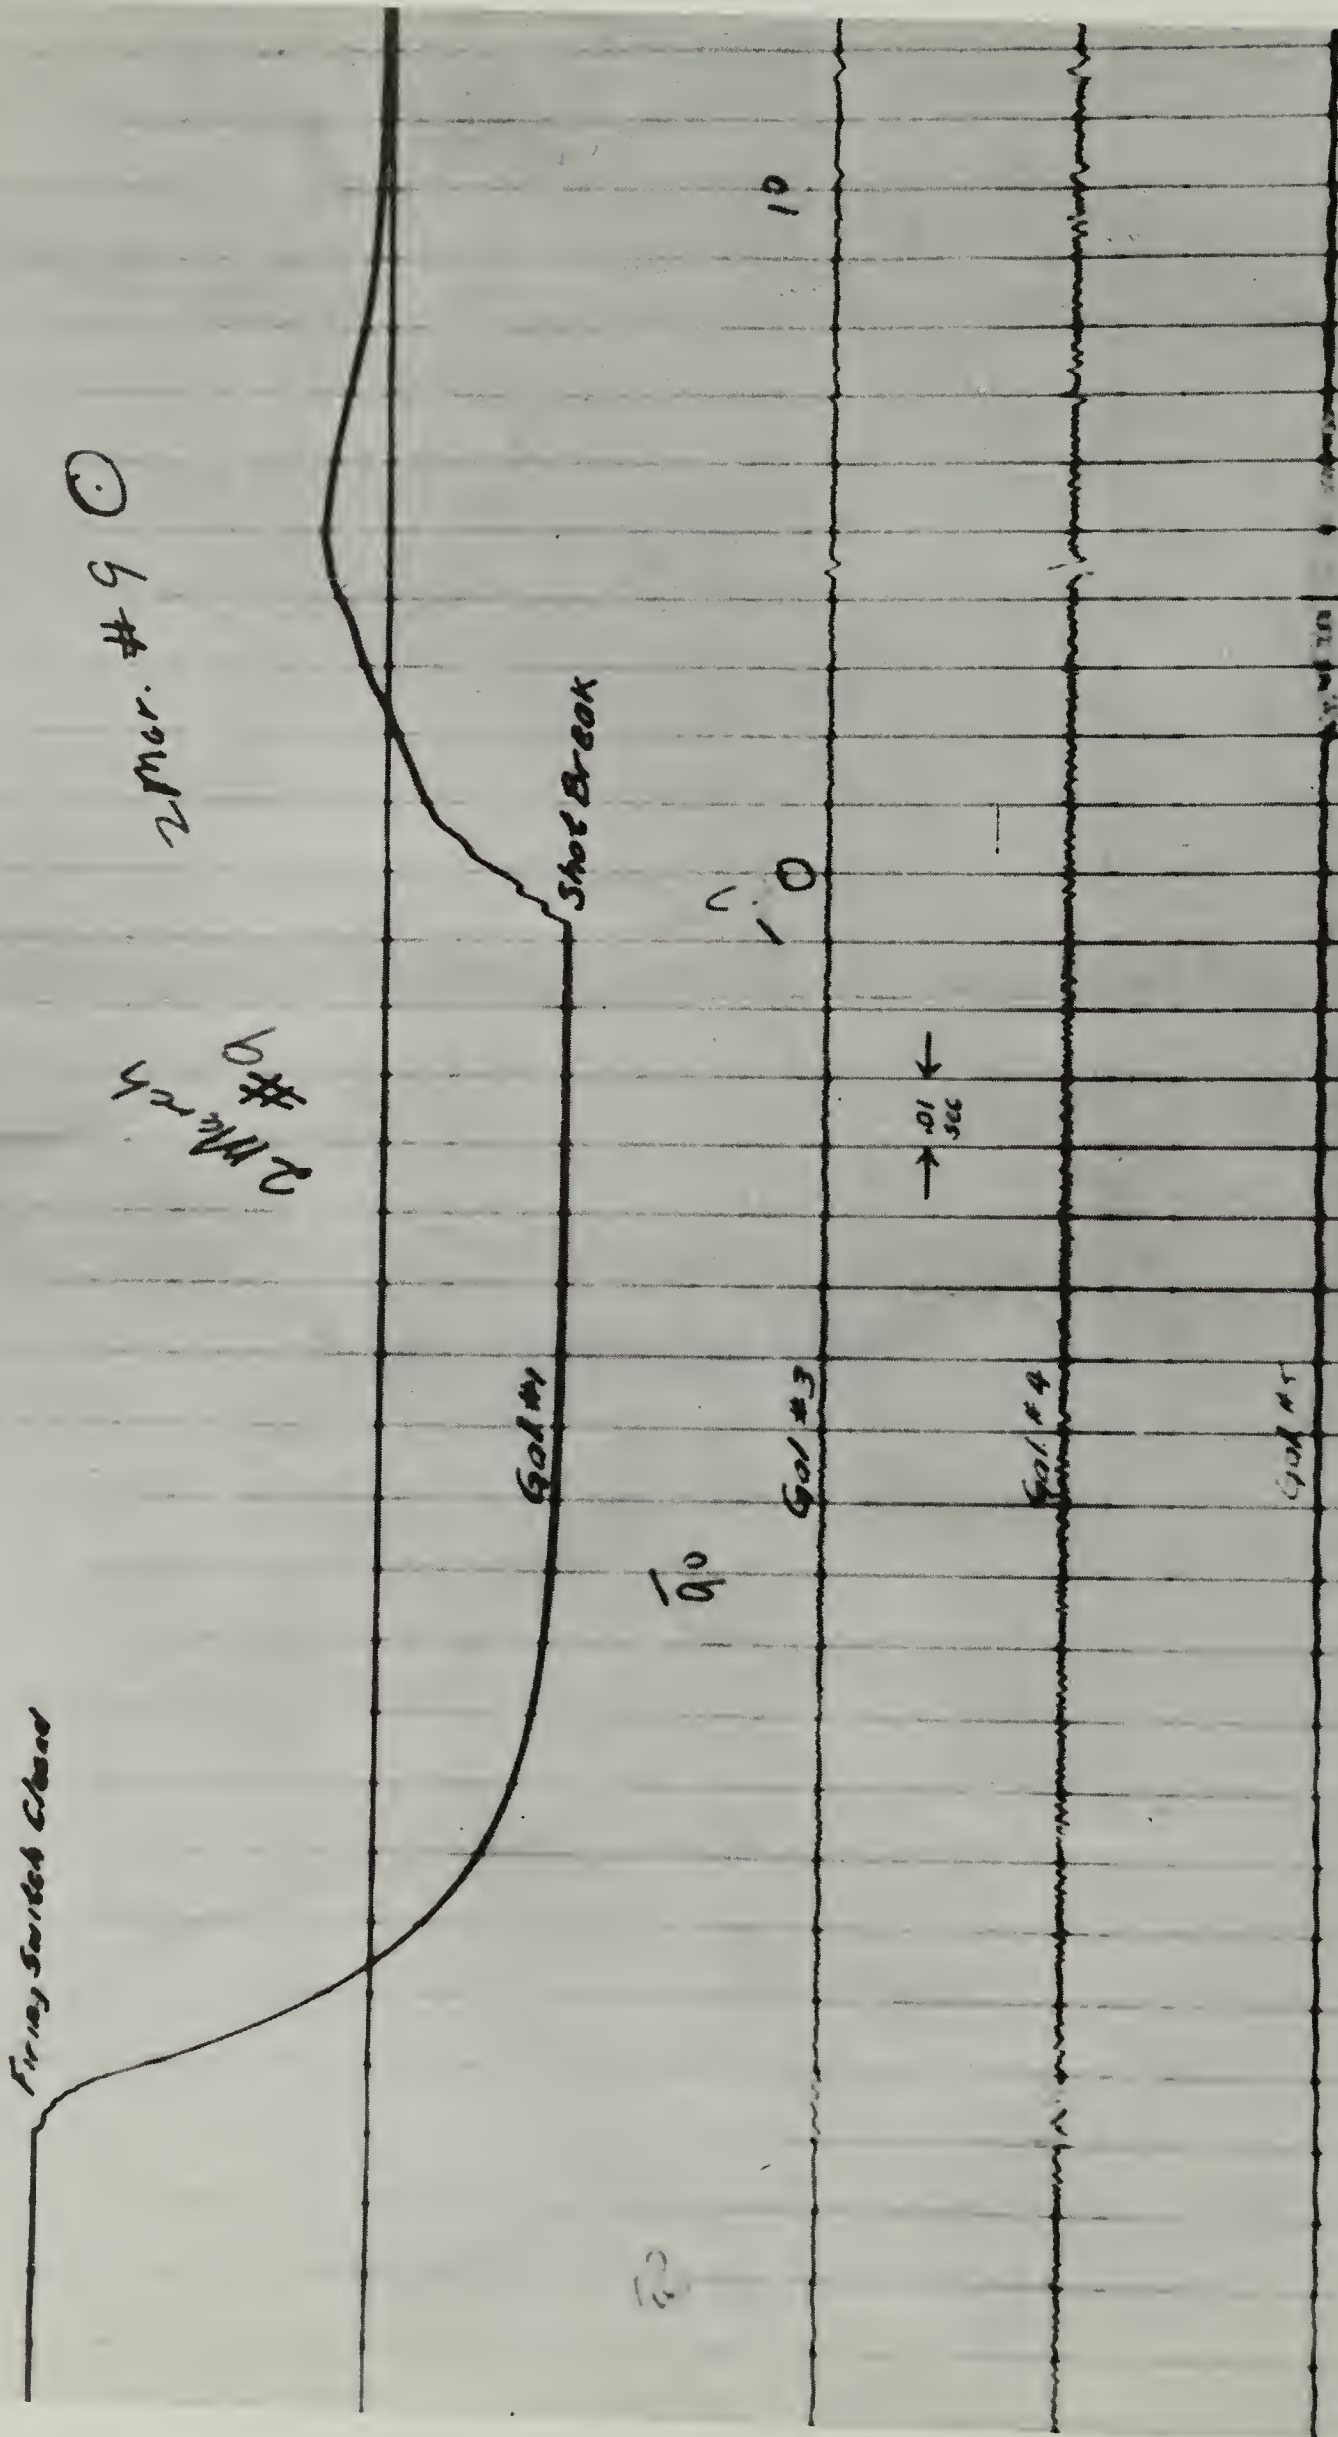 Firing Switch Closed
2 Mar. # 9
2 March
# 9
Shot Break
Gal #1
10
0
Gal #3
.01
sec
Gal #4
Gal #5